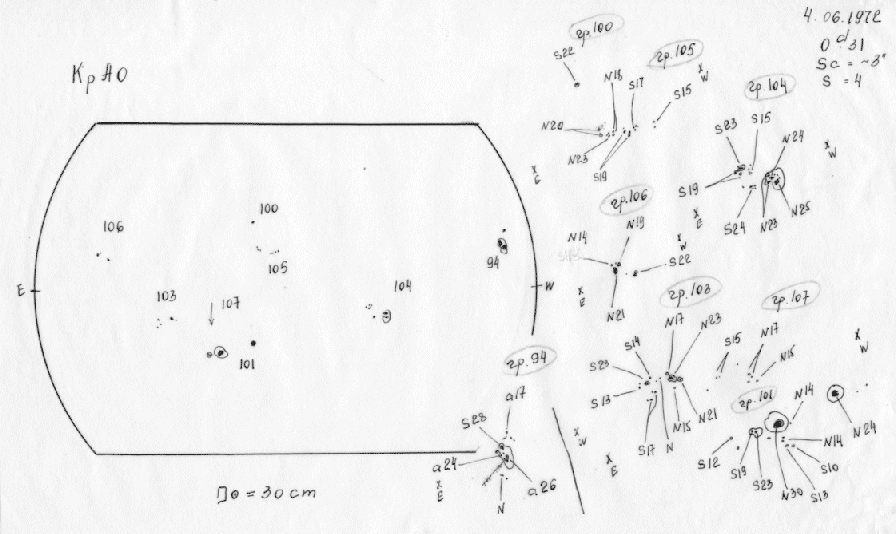 4.06.1972
0 d 31
Sc = ~3"
S = 4
КрАО
гр.100
S22
гр.105
N18
S17
S15
N20
N23
S19
x W
x E
гр.104
S23
S15
N24
S19
S24
N23
N25
x W
x E
гр.106
N14
N19
S22
N21
x W
x E
106
100
105
94
E
W
103
107
104
101
гр.103
N17
N23
S14
S23
S13
S17
N
N15
N21
гр.107
S15
N17
x W
гр.101
N14
N24
S12
S19
S23
N30
S13
S10
N14
x E
гр.94
a17
S28
a24
a26
N
x W
x E
D⊙ = 30 cm